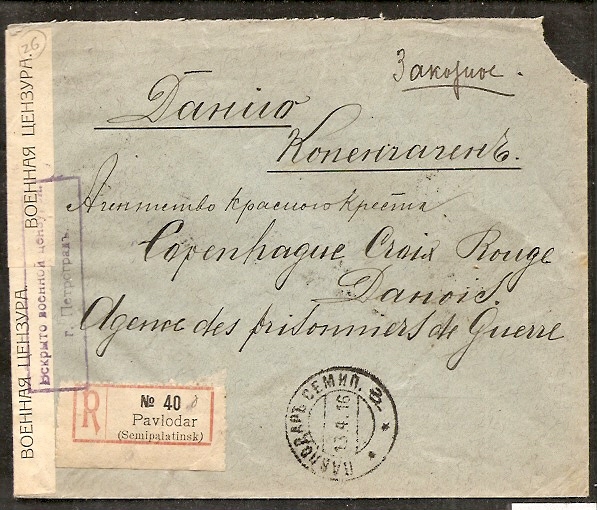 26
Заказное.
Данию
Копенгагенъ.
Агентство Красного Креста
Copenhague Croix Rouge
Danois.
Agence des prisonniers de Guerre
ВОЕННАЯ ЦЕНЗУРА.
ВОЕННАЯ ЦЕНЗУРА.
Вскрыто военной цензурой
г. Петроградъ.
R
№ 40
Pavlodar
(Semipalatinsk)
ПАВЛОДАРЪ СЕМИП.
13.4.16